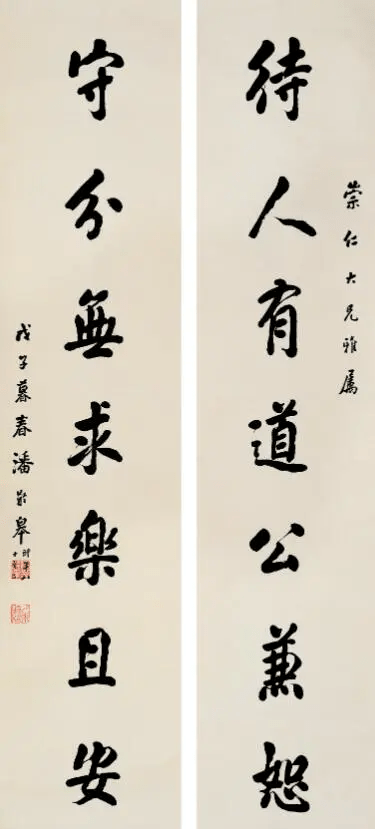 崇仁大兄雅屬
待人有道公兼恕
守分無求樂且安
戊子暮春潘齡皋